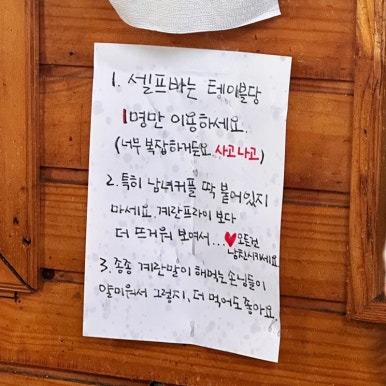 1. 셀프바는 테이블당
1명만 이용하세요.
(너무 복잡하거든요. 사고나고)
2. 특히 남녀커플 딱 붙어있지
마세요. 계란프라이 보다
더 뜨거워 보여서...♥모든걸
남친시키세요
3. 종종 계란말이 해먹는손님들이
얄미워서 그렇지, 더 먹어도 좋아요.